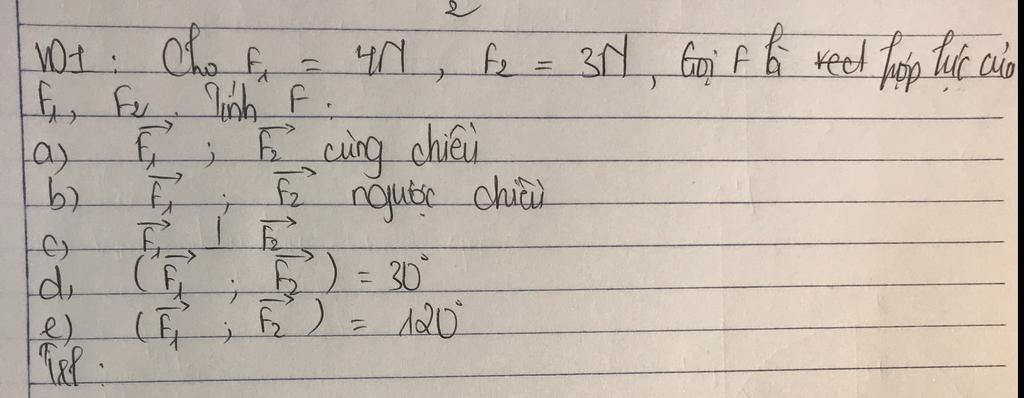 2
VD1 : Cho F₁ = 4N , F₂ = 3N , Gọi F là vect hợp lực của
F₁, F₂. Tính F :
a) $\overrightarrow{F_1}$ ; $\overrightarrow{F_2}$ cùng chiều
b) $\overrightarrow{F_1}$ ; $\overrightarrow{F_2}$ ngược chiều
c) $\overrightarrow{F_1}$ ⊥ $\overrightarrow{F_2}$
d) ($\overrightarrow{F_1}$ ; $\overrightarrow{F_2}$) = 30°
e) ($\overrightarrow{F_1}$ ; $\overrightarrow{F_2}$) = 120°